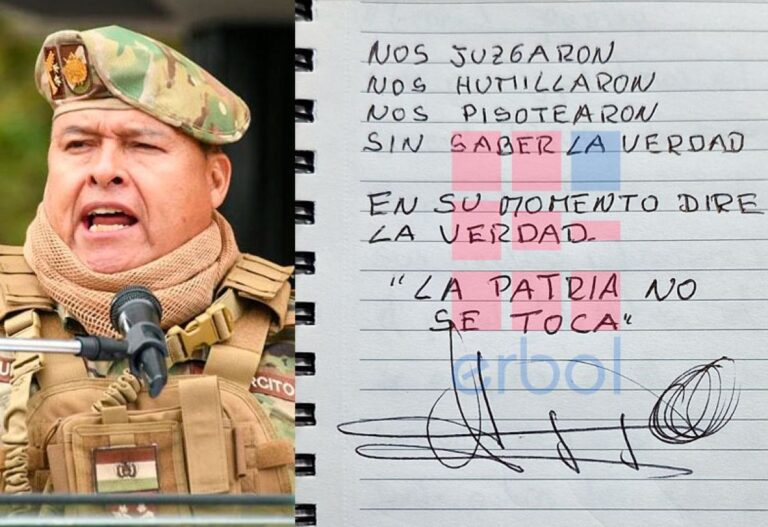 ÉRCITO
NOS JUZGARON
NOS HUMILLARON
NOS PISOTEARON
SIN SABER LA VERDAD
EN SU MOMENTO DIRE
LA VERDAD.
"LA PATRIA NO
SE TOCA"
erbol